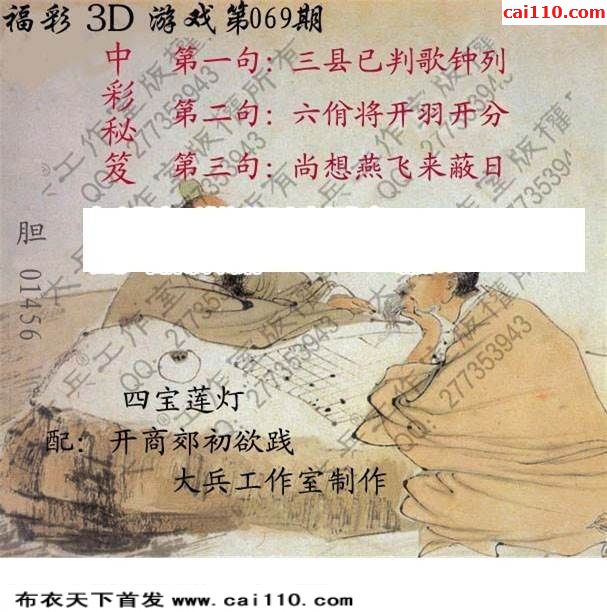 福彩 3D 游戏第069期
cai110.com
中彩秘笈
第一句：三县已判歌钟列
第二句：六佾将开羽开分
第三句：尚想燕飞来蔽日
胆 01456
四宝莲灯
配：开商郊初欲践
大兵工作室制作
大兵工作室版权所有
QQ：277353943
布衣天下首发 www.cai110.com